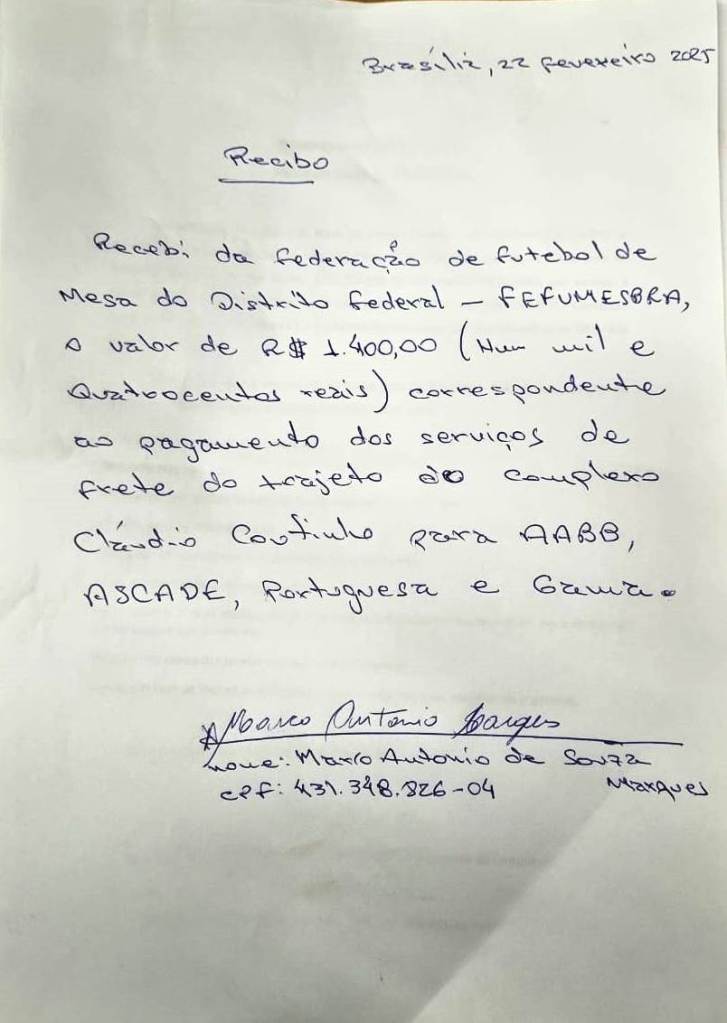 Brasília, 22 fevereiro 2025
Recibo
Recebi da federação de futebol de
Mesa do Distrito federal - FEFUMESBRA,
o valor de R$ 1.400,00 (Hum mil e
Quatrocentos reais) correspondente
ao pagamento dos serviços de
frete do trajeto do complexo
Cláudio Coutinho para AABB,
ASCADE, Portuguesa e Gama.
Marco Antonio
nome: Marco Antonio de Souza
Marques
CPF: 431.348.826-04